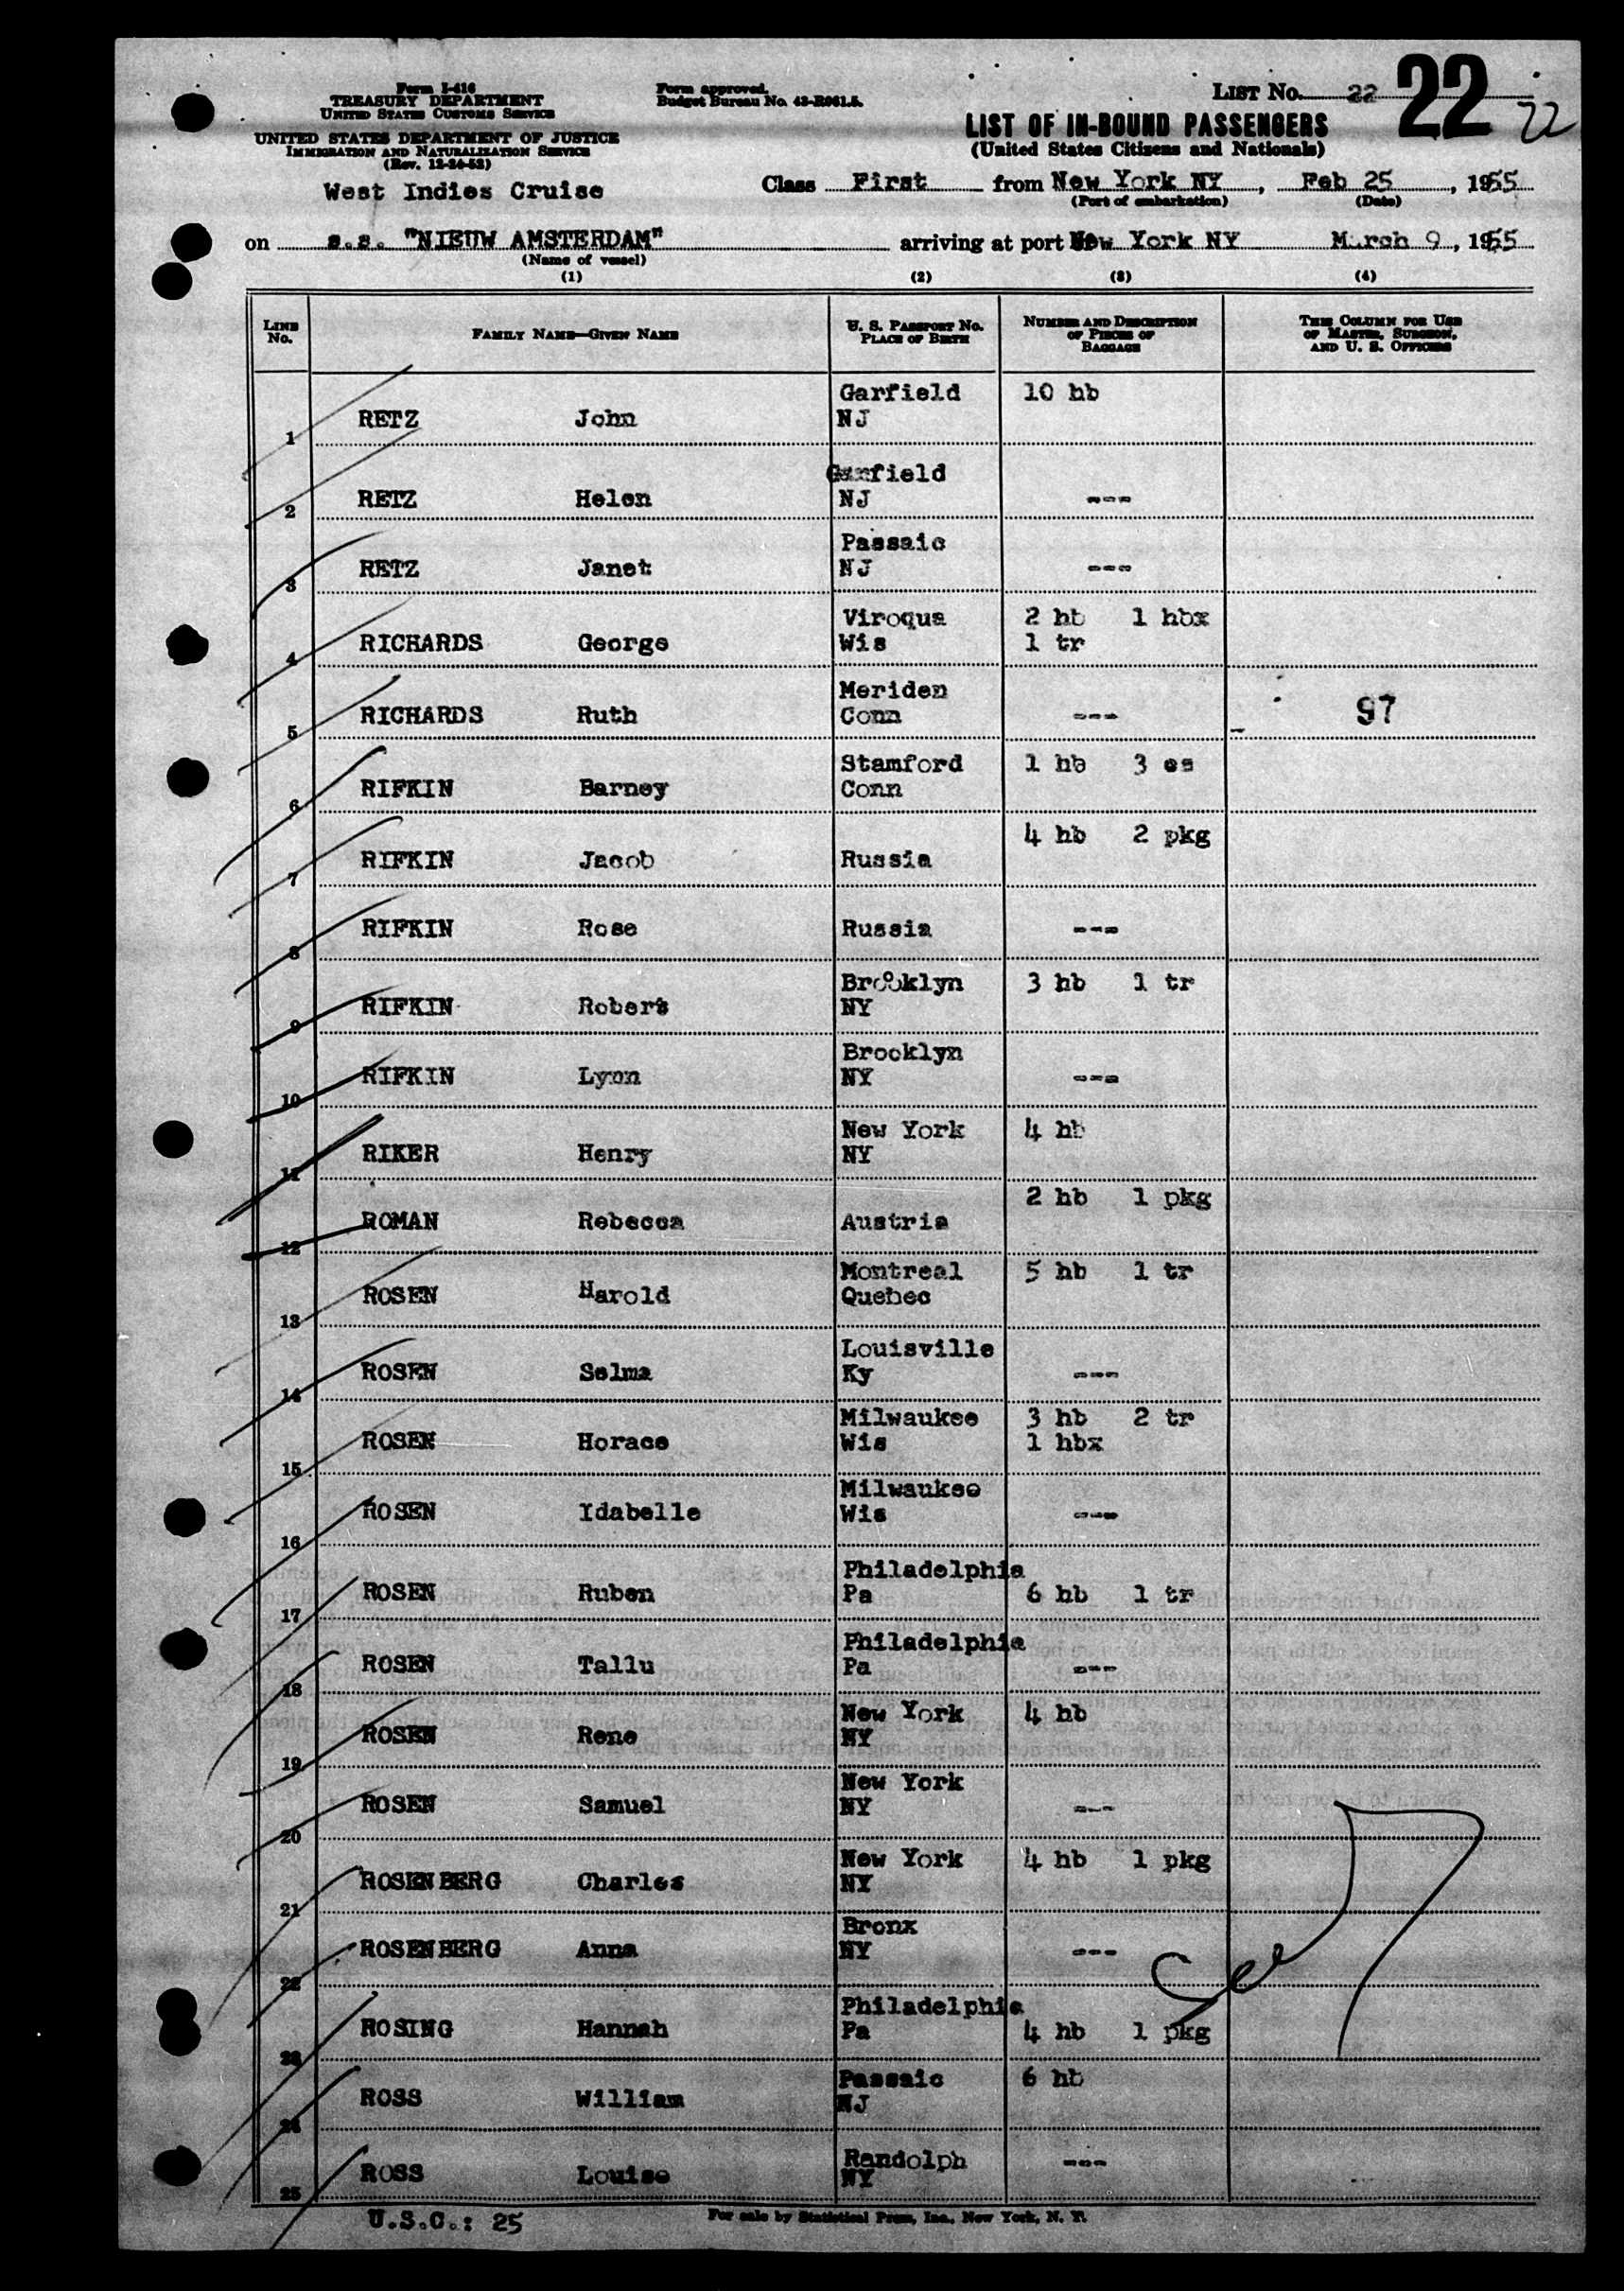 Form I-416
TREASURY DEPARTMENT
UNITED STATES CUSTOMS SERVICE
UNITED STATES DEPARTMENT OF JUSTICE
IMMIGRATION AND NATURALIZATION SERVICE
(Rev. 12-24-52)
Form approved.
Budget Bureau No. 43-R061.5.
LIST No. 22 22 22
LIST OF IN-BOUND PASSENGERS
(United States Citizens and Nationals)
West Indies Cruise
Class First from New York NY, Feb 25, 1955
(Port of embarkation) (Date)
on s.s. "NIEUW AMSTERDAM" arriving at port New York NY March 9, 1955
(Name of vessel)
(1) (2) (3) (4)
LINE No. FAMILY NAME—GIVEN NAME U. S. PASSPORT No. PLACE OF BIRTH NUMBER AND DESCRIPTION OF PIECES OF BAGGAGE THIS COLUMN FOR USE OF MASTER, SURGEON, AND U. S. OFFICERS
1 RETZ John Garfield NJ 10 hb
2 RETZ Helen Garfield NJ ---
3 RETZ Janet Passaic NJ ---
4 RICHARDS George Viroqua Wis 2 hb 1 hbx 1 tr
5 RICHARDS Ruth Meriden Conn --- 97
6 RIFKIN Barney Stamford Conn 1 hb 3 cs
7 RIFKIN Jacob Russia 4 hb 2 pkg
8 RIFKIN Rose Russia ---
9 RIFKIN Robert Brooklyn NY 3 hb 1 tr
10 RIFKIN Lynn Brooklyn NY ---
11 RIKER Henry New York NY 4 hb
12 ROMAN Rebecca Austria 2 hb 1 pkg
13 ROSEN Harold Montreal Quebec 5 hb 1 tr
14 ROSEN Selma Louisville Ky ---
15 ROSEN Horace Milwaukee Wis 3 hb 2 tr 1 hbx
16 ROSEN Idabelle Milwaukee Wis ---
17 ROSEN Ruben Philadelphia Pa 6 hb 1 tr
18 ROSEN Tallu Philadelphia Pa ---
19 ROSEN Rene New York NY 4 hb
20 ROSEN Samuel New York NY ---
21 ROSENBERG Charles New York NY 4 hb 1 pkg
22 ROSENBERG Anna Bronx NY ---
23 ROSING Hannah Philadelphia Pa 4 hb 1 pkg
24 ROSS William Passaic NJ 6 hb
25 ROSS Louise Randolph NY ---
U.S.C.: 25
For sale by Statistical Press, Inc., New York, N. Y.